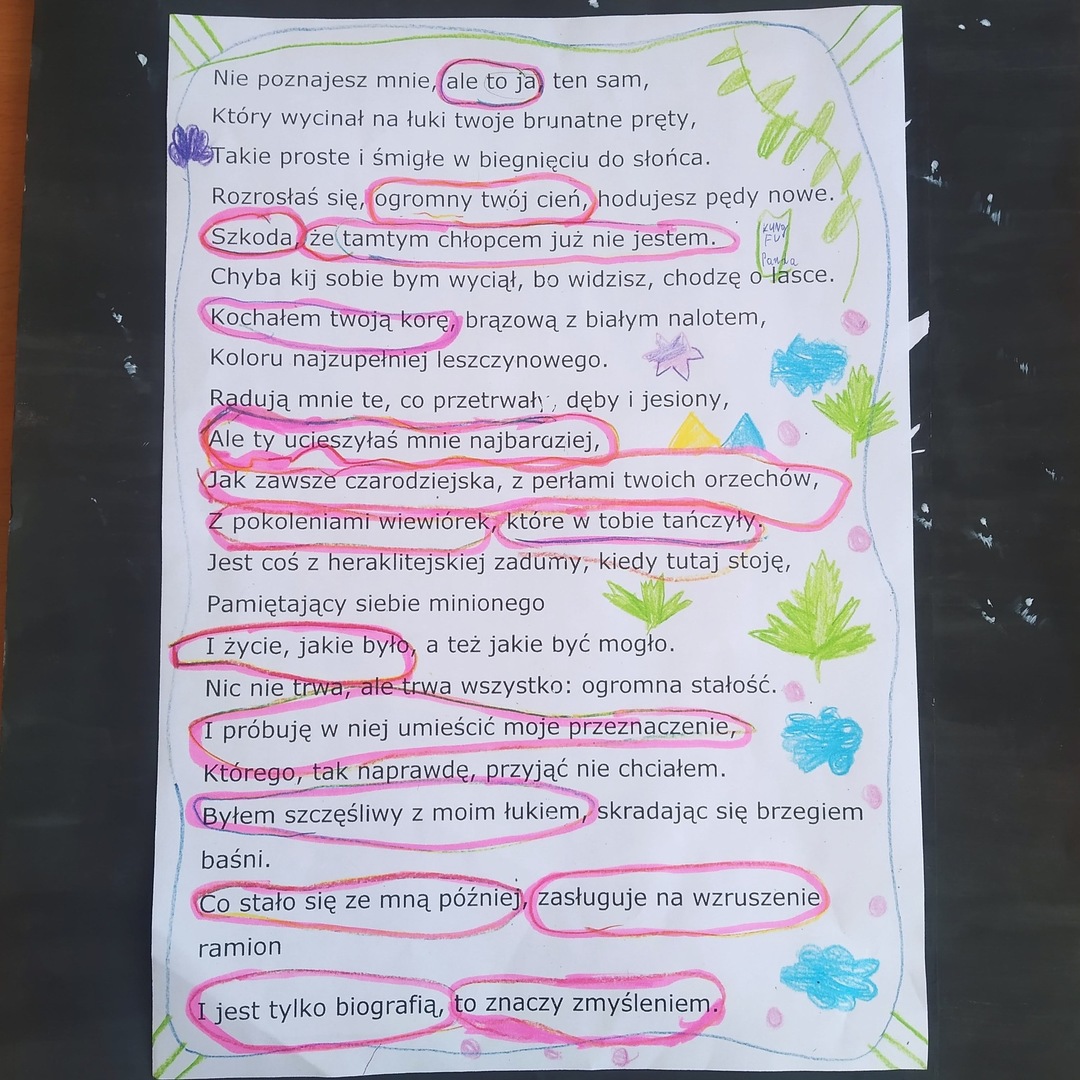 Nie poznajesz mnie, ale to ja, ten sam,
Który wycinał na łuki twoje brunatne pręty,
Takie proste i śmigłe w biegnięciu do słońca.
Rozrosłaś się, ogromny twój cień, hodujesz pędy nowe.
Szkoda, że tamtym chłopcem już nie jestem.
KUNG
FU
Panda
Chyba kij sobie bym wyciął, bo widzisz, chodzę o lasce.
Kochałem twoją korę, brązową z białym nalotem,
Koloru najzupełniej leszczynowego.
Radują mnie te, co przetrwały, dęby i jesiony,
Ale ty ucieszyłaś mnie najbardziej,
Jak zawsze czarodziejska, z perłami twoich orzechów,
Z pokoleniami wiewiórek, które w tobie tańczyły.
Jest coś z heraklitejskiej zadumy, kiedy tutaj stoję,
Pamiętający siebie minionego
I życie, jakie było, a też jakie być mogło.
Nic nie trwa, ale trwa wszystko: ogromna stałość.
I próbuję w niej umieścić moje przeznaczenie,
Którego, tak naprawdę, przyjąć nie chciałem.
Byłem szczęśliwy z moim łukiem, skradając się brzegiem
baśni.
Co stało się ze mną później, zasługuje na wzruszenie
ramion
I jest tylko biografią, to znaczy zmyśleniem.